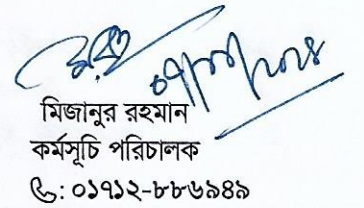 মিজানুর রহমান
কর্মসূচি পরিচালক
✆: ০১৭১২-৮৮৬৯৪৯